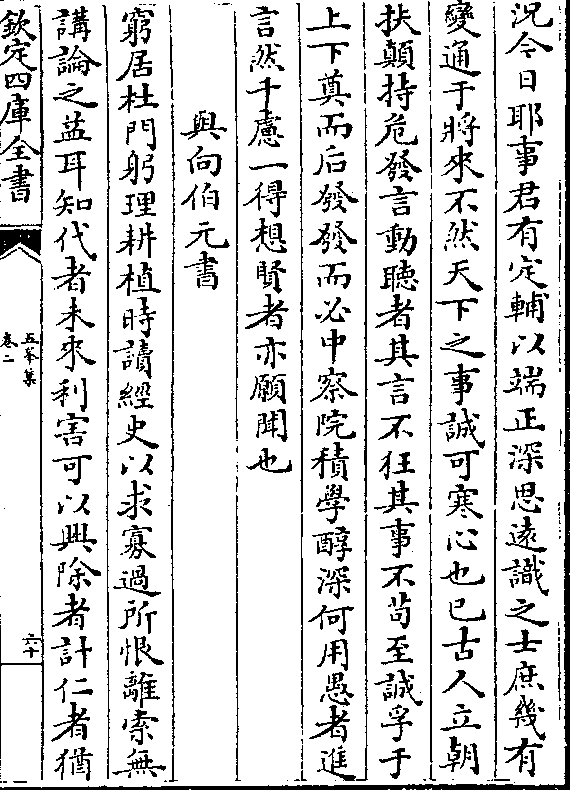 況今日耶事君有定輔以端正深思遠識之士庶幾有
變通于將來不然天下之事誠可寒心也已古人立朝
扶顛持危發言動聽者其言不狂其事不苟至誠孚于
上下蓂而后發發而必中察院積學醇深何用愚者進
言然千慮一得想賢者亦願聞也
與向伯元書
窮居杜門躬理耕植時讀經史以求寡過所恨離索無
講論之益耳知代者未來利害可以興除者計仁者猶
欽定四庫全書
五峯集
卷二
六十